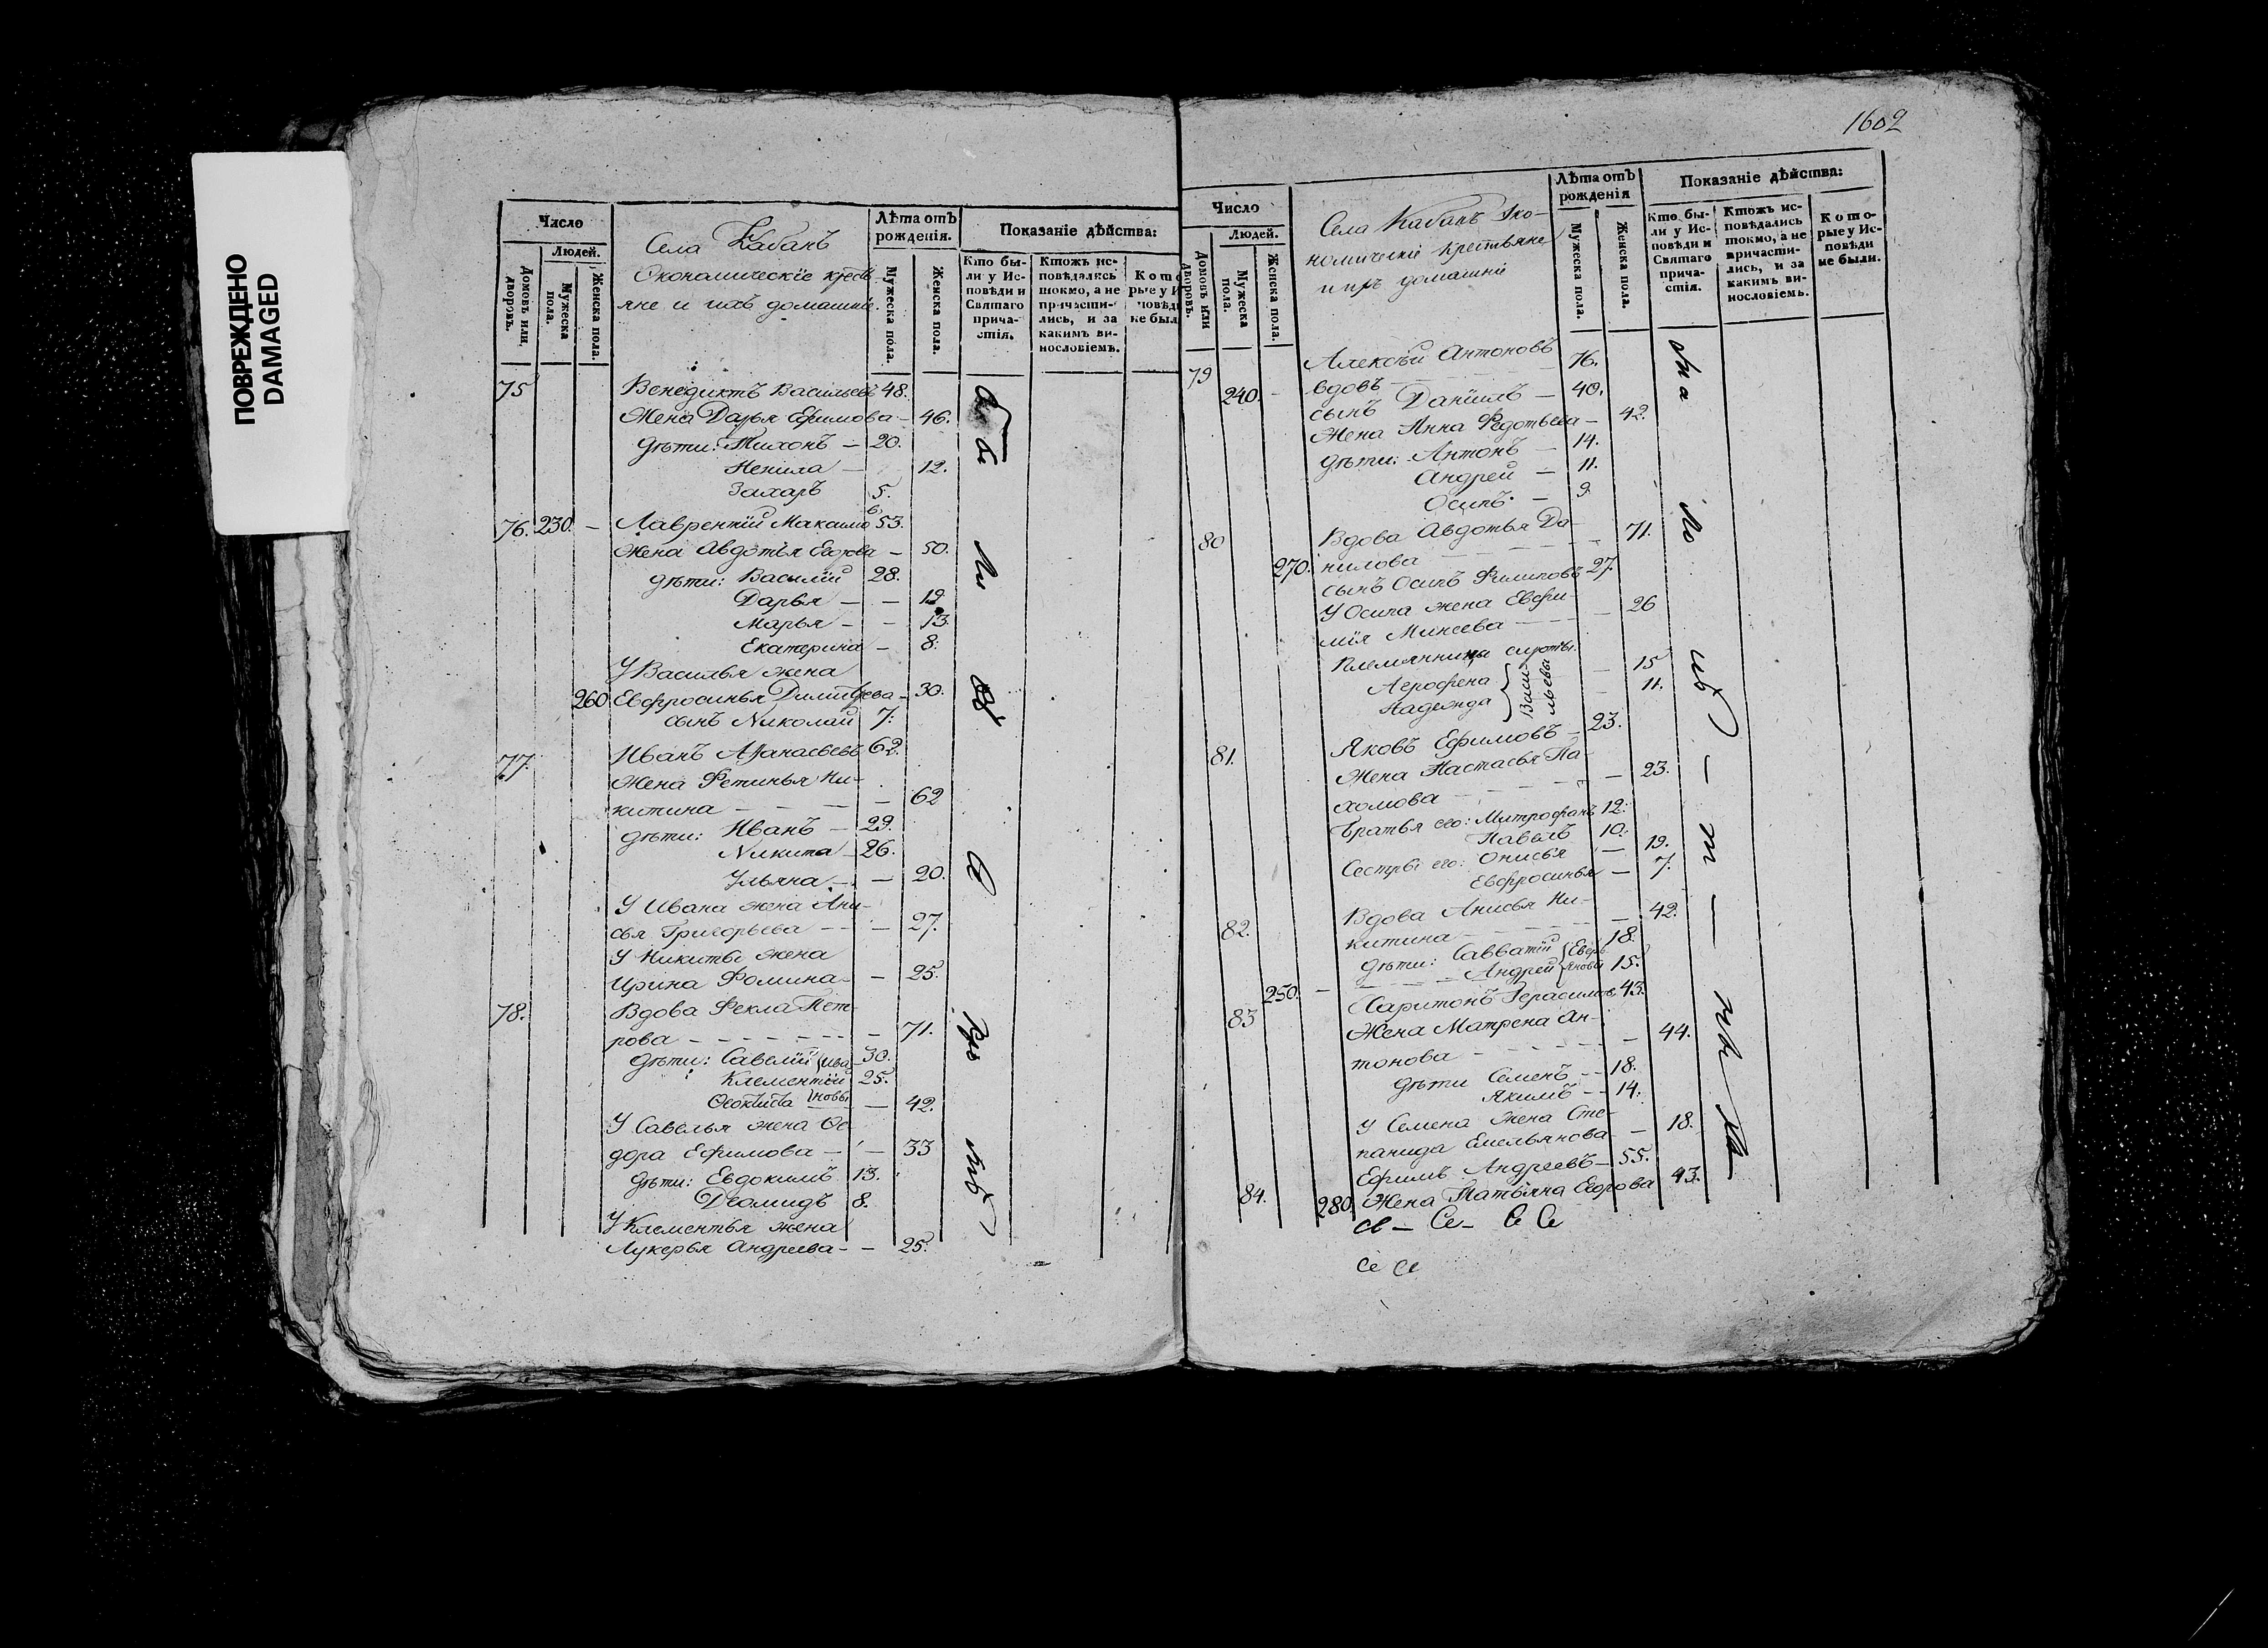 ПОВРЕЖДЕНО
DAMAGED
Число
Людей.
Домовъ или дворовъ.
Мужеска пола.
Женска пола.
Села Кабанъ
Экономическіе кресть-
яне и ихъ домашніе.
Лѣта отъ рожденія.
Мужеска пола.
Женска пола.
Показаніе дѣйства:
Кто бы-
ли у Ис-
повѣди и
Святаго
прича-
стія.
Ктожъ ис-
повѣдались
токмо, а не
причасти-
лись, и за
какимъ ви-
нословіемъ.
Кото
рые у И
повѣд
не был
75 Венедиктъ Васильевъ 48.
Жена Дарья Ефимова – 46.
дѣти: Тихонъ – 20.
Ненила – 12.
Захаръ 5.
76. 230. – Лаврентій Максимовъ 53.
Жена Авдотья Егорова – 50.
дѣти: Василій 28.
Дарья – – 19
Марья – – 13.
Екатерина – 8.
У Василья жена
260 Евфросинья Димитрева – 30.
сынъ Николай 7.
77. Иванъ Афанасьевъ 62.
Жена Фетинья Ни-
китина – – – – 62
дѣти: Иванъ – 29.
Никита – 26.
Ульяна – – 20.
У Ивана жена Ани-
сья Григорьева – – – 27.
У Никиты жена
Ирина Фомина – – 25.
78. Вдова Фекла Пет-
рова – – – – – – – 71.
дѣти: Савелій {Ива- 30.
Клементій 25.
Феоктиста }новы – 42.
У Савелья жена Фе-
дора Ефимова – – – 33
дѣти: Евдокимъ 13.
Деомидъ 8.
У Клементья жена
Лукерья Андреева – – 25.
1602
Число
Людей.
Домовъ или дворовъ.
Мужеска пола.
Женска пола.
Села Кабанъ Эко-
номическіе крестьяне
и ихъ домашніе
Лѣта отъ рожденія
Мужеска пола.
Женска пола.
Показаніе дѣйства:
Кто бы-
ли у Ис-
повѣди и
Святаго
прича-
стія.
Ктожъ ис-
повѣдались
токмо, а не
причасти-
лись, и за
какимъ ви-
нословіемъ.
Кото-
рые у Ис-
повѣди
не были.
79 Алексѣй Антоновъ
240. – вдовъ – – – – – 76.
сынъ Даніилъ – 40.
Жена Анна Федотьева – 42.
дѣти: Антонъ – 14.
Андрей – 11.
Осипъ – 9.
80 Вдова Авдотья Да-
270. нилова – – – – – 71.
сынъ Осипъ Филиповъ 27.
У Осипа жена Евфи-
мія Минеева – – – – 26
Племянницы сироты:
Агрофена } Васи- – 15
Надежда } льевы – 11.
81. Яковъ Ефимовъ – 23.
Жена Настасья Па-
хомова – – – – – 23.
Братья его: Митрофанъ 12.
Павелъ 10.
Сестры его: Онисья – 19.
Евфросинья – 7.
82. Вдова Анисья Ни-
китина – – – – – 42.
дѣти: Савватій 18.
250. – Андрей 15.
83 Харитонъ Герасимов. 43.
Жена Матрена Ан-
тонова – – – – – 44.
дѣти Семенъ – – 18.
Якимъ – – 14.
У Семена жена Сте-
панида Емельянова – 18.
84. Ефимъ Андреевъ – 55.
280. Жена Татьяна Егорова 43.